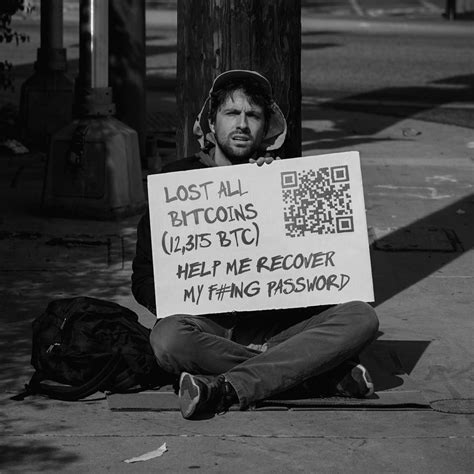 LOST ALL
BITCOINS
(12,315 BTC)
HELP ME RECOVER
MY F#ING PASSWORD